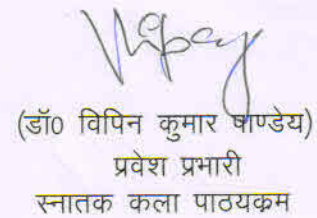 (डॉ0 विपिन कुमार पाण्डेय)
प्रवेश प्रभारी
स्नातक कला पाठयकम